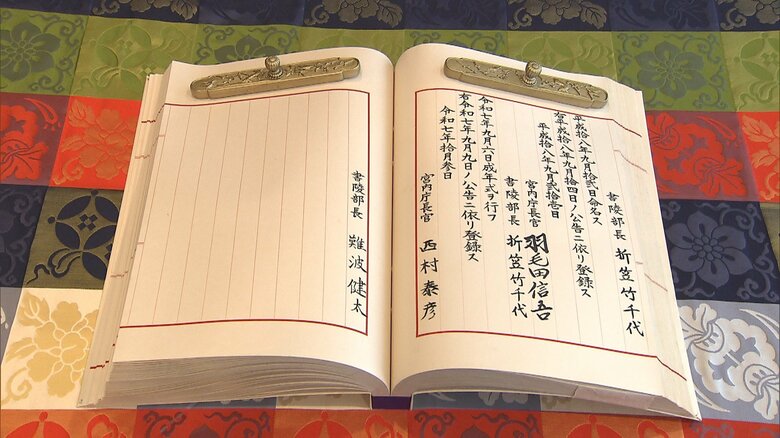 書陵部長 折笠竹千代
平成拾八年九月拾貳日命名ス
右平成拾八年九月拾四日ノ公告ニ依リ登録ス
平成拾八年九月貳拾壹日
宮内庁長官 羽毛田信吾
書陵部長 折笠竹千代
令和七年九月六日成年式ヲ行フ
右令和七年九月九日ノ公告ニ依リ登録ス
令和七年拾月参日
宮内庁長官 西村泰彦
書陵部長 難波健太